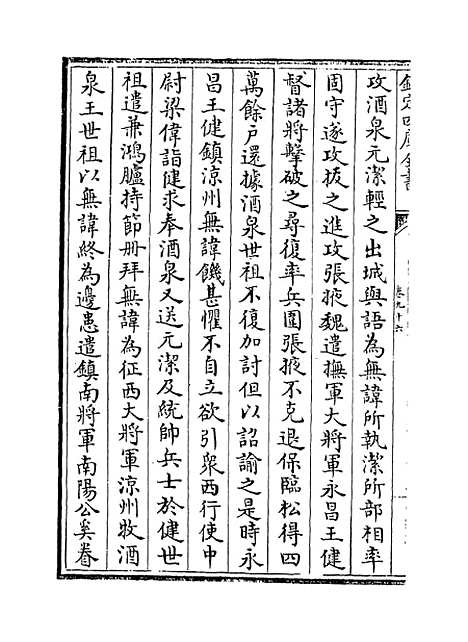 欽定四庫全書
卷九十六
攻酒泉元潔輕之出城與語為無諱所執潔所部相率
固守遂攻拔之進攻張掖魏遣撫軍大將軍永昌王健
督諸將擊破之尋復率兵圍張掖不克退保臨松得四
萬餘户還據酒泉世祖不復加討但以詔諭之是時永
昌王健鎮涼州無諱饑甚懼不自立欲引衆西行使中
尉梁偉詣健求奉酒泉又送元潔及統帥兵士於健世
祖遣兼鴻臚持節册拜無諱為征西大將軍涼州牧酒
泉王世祖以無諱終為邊患遣鎮南將軍南陽公奚眷